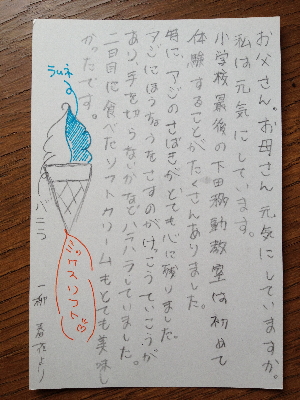 お父さん。お母さん元気にしていますか。
私は元気にしています。
小学校最後の下田移動教室は初めて
体験することがたくさんありました。
特に、アジのさばきがとても心に残りました。
アジにほうちょうをさすのがけっこうていこうが
あり、手を切らないかなどハラハラしていました。
二日目に食べたソフトクリームもとても美味し
かったです。
ラムネ
バニラ
ミックスソフト
一柳
より